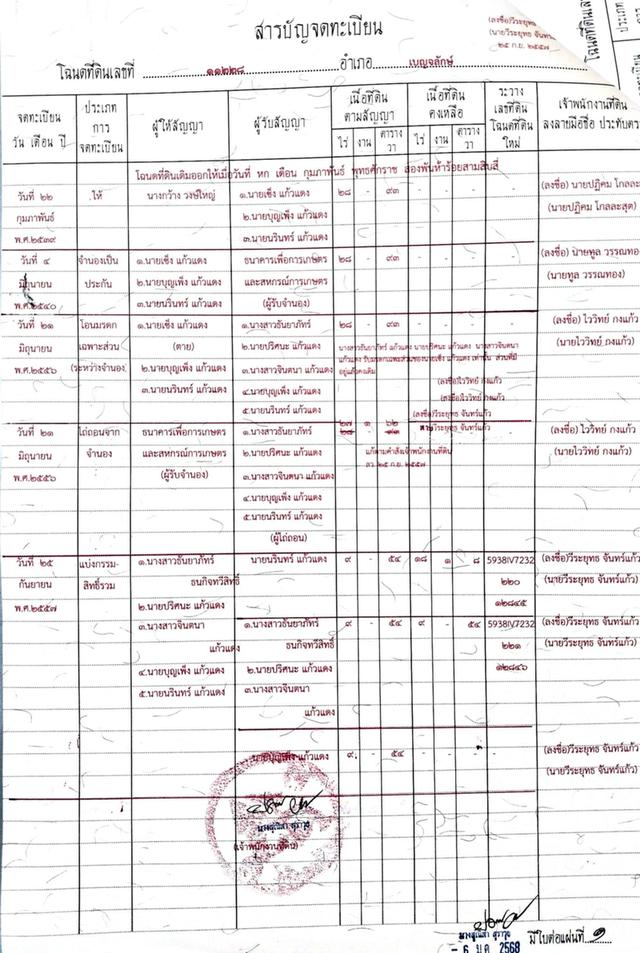 สารบัญจดทะเบียน
(ลงชื่อ)วีระยุทธ
(นายวีระยุทธ จันทร์
๒๕ ก.ย. ๒๕๕๗
โฉนดที่ดินเลขที่ ๑๑๒๒๘ อำเภอ เบญจลักษ์
จดทะเบียน วัน เดือน ปี
ประเภท การ จดทะเบียน
ผู้ให้สัญญา
ผู้รับสัญญา
เนื้อที่ดิน ตามสัญญา
ไร่ งาน ตารางวา
เนื้อที่ดิน คงเหลือ
ไร่ งาน ตารางวา
ระวาง เลขที่ดิน โฉนดที่ดิน ใหม่
เจ้าพนักงานที่ดิน ลงลายมือชื่อ ประทับตรา
โฉนดที่ดินเดิมออกให้เมื่อวันที่ หก เดือน กุมภาพันธ์ พุทธศักราช สองพันห้าร้อยสามสิบสี่
วันที่ ๒๒ ให้ นางกว้าง วงษ์ใหญ่ ๑.นายเซ็ง แก้วแดง ๒๘ - ๙๓ - - - - (ลงชื่อ) นายปฏิคม
กุมภาพันธ์ ๒.นายบุญเพ็ง แก้วแดง (นายปฏิคม
พ.ศ.๒๕๓๙ ๓.นายนรินทร์ แก้วแดง
วันที่ ๔ จำนองเป็น ๑.นายเซ็ง แก้วแดง ธนาคารเพื่อการเกษตร ๒๘ - ๙๓ - - - - (ลงชื่อ) นายทูล วรรณทอง
มิถุนายน ประกัน ๒.นายบุญเพ็ง แก้วแดง และสหกรณ์การเกษตร (นายทูล วรรณทอง)
พ.ศ.๒๕๔๐ ๓.นายนรินทร์ แก้วแดง (ผู้รับจำนอง)
วันที่ ๒๑ โอนมรดก ๑.นายเซ็ง แก้วแดง ๑.นางสาวธันยาภัทร์ ๒๘ - ๙๓ - - - - (ลงชื่อ) ไววิทย์ กงแก้ว
มิถุนายน เฉพาะส่วน (ตาย) ๒.นายปริศนะ แก้วแดง นางสาวธันยาภัทร์ แก้วแดง นายปริศนะ แก้วแดง นางสาวจินตนา (นายไววิทย์ กงแก้ว)
พ.ศ.๒๕๕๖ (ระหว่างจำนอง) ๒.นายบุญเพ็ง แก้วแดง ๓.นางสาวจินตนา แก้วแดง แก้วแดง รับมรดกเฉพาะส่วนของนายเซ็ง แก้วแดง เท่านั้น ส่วนที่มี
อยู่แก้วคงเดิม
๓.นายนรินทร์ แก้วแดง ๔.นายบุญเพ็ง แก้วแดง (ลงชื่อ)ไววิทย์ กงแก้ว
(ลงชื่อ)ไววิทย์ กงแก้ว
๕.นายนรินทร์ แก้วแดง (ลงชื่อ)วีระยุทธ จันทร์แก้ว
๒๗ ๑ ๖๒
วันที่ ๒๑ ไถ่ถอนจาก ธนาคารเพื่อการเกษตร ๑.นางสาวธันยาภัทร์ ๒๘ - ๙๓ วีระยุทธ จันทร์แก้ว (ลงชื่อ) ไววิทย์ กงแก้ว
มิถุนายน จำนอง และสหกรณ์การเกษตร ๒.นายปริศนะ แก้วแดง แก้ตามคำสั่งเจ้าพนักงานที่ดิน (นายไววิทย์ กงแก้ว)
พ.ศ.๒๕๕๖ (ผู้รับจำนอง) ๓.นางสาวจินตนา แก้วแดง ลว. ๒๕ ก.ย. ๒๕๕๗
๔.นายบุญเพ็ง แก้วแดง
๕.นายนรินทร์ แก้วแดง
(ผู้ไถ่ถอน)
วันที่ ๒๕ แบ่งกรรม- ๑.นางสาวธันยาภัทร์ นายนรินทร์ แก้วแดง ๙ - ๕๔ ๑๘ ๑ ๘ 5938IV7232 (ลงชื่อ)วีระยุทธ จันทร์แก้ว
กันยายน สิทธิ์รวม ธนกิจทวีสิทธิ์ ๒๒๐ (นายวีระยุทธ จันทร์แก้ว)
พ.ศ.๒๕๕๗ ๒.นายปริศนะ แก้วแดง ๑๒๘๔๕
๓.นางสาวจินตนา ๑.นางสาวธันยาภัทร์ ๙ - ๕๔ ๙ - ๕๔ 5938IV7232 (ลงชื่อ)วีระยุทธ จันทร์แก้ว
แก้วแดง ธนกิจทวีสิทธิ์ ๒๒๑ (นายวีระยุทธ จันทร์แก้ว)
๔.นายบุญเพ็ง แก้วแดง ๒.นายปริศนะ แก้วแดง ๑๒๘๔๖
๕.นายนรินทร์ แก้วแดง ๓.นางสาวจินตนา
แก้วแดง
นายบุญเพ็ง แก้วแดง ๙ - ๕๔ - - - - (ลงชื่อ)วีระยุทธ จันทร์แก้ว
(นายวีระยุทธ จันทร์แก้ว)
(เจ้าพนักงานที่ดิน)
- 6 ม.ค. 2568
มีใบต่อแผ่นที่